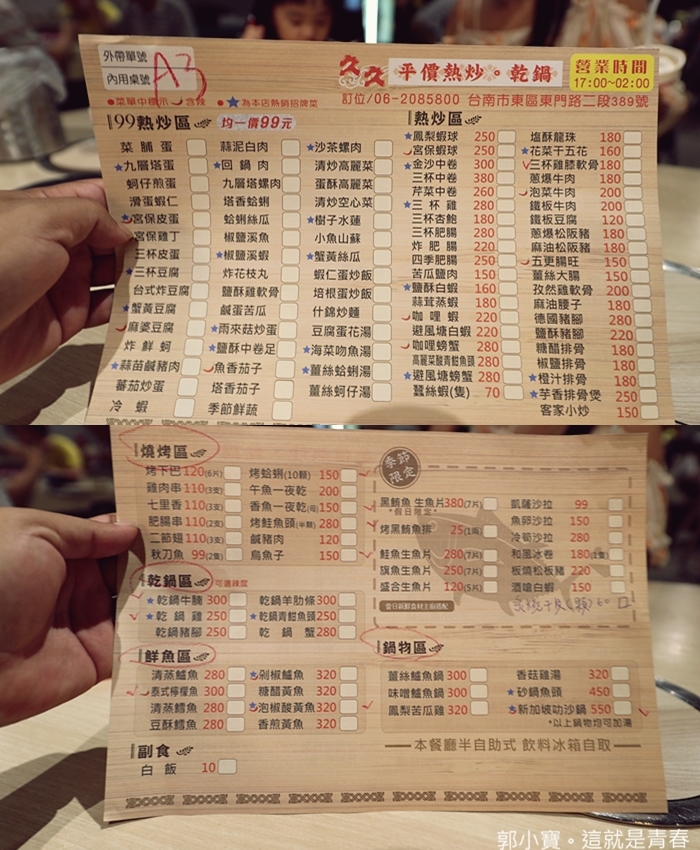 外帶單號
內用桌號 A3
久久 平價熱炒。乾鍋
營業時間
17:00~02:00
●菜單中標示 含辣 ●★為本店熱銷招牌菜
訂位/06-2085800 台南市東區東門路二段389號
99熱炒區 均一價99元
菜脯蛋
★九層塔蛋
蚵仔煎蛋
滑蛋蝦仁
宮保皮蛋
宮保雞丁
三杯皮蛋
★三杯豆腐
台式炸豆腐
★蟹黃豆腐
麻婆豆腐
炸鮮蚵
★蒜苗鹹豬肉
蕃茄炒蛋
冷蝦
蒜泥白肉
★回鍋肉
九層塔螺肉
塔香蛤蜊
蛤蜊絲瓜
椒鹽溪魚
★椒鹽溪蝦
炸花枝丸
鹽酥雞軟骨
鹹蛋苦瓜
★雨來菇炒蛋
★鹽酥中卷足
魚香茄子
塔香茄子
季節鮮蔬
★沙茶螺肉
清炒高麗菜
蛋酥高麗菜
清炒空心菜
★樹子水蓮
小魚山蘇
★蟹黃絲瓜
蝦仁蛋炒飯
培根蛋炒飯
什錦炒麵
豆腐蛋花湯
★海菜吻魚湯
★薑絲蛤蜊湯
薑絲蚵仔湯
★鳳梨蝦球 250
宮保蝦球 250
★金沙中卷 300
三杯中卷 380
芹菜中卷 260
★三杯雞 230
三杯杏鮑 180
三杯肥腸 280
炸肥腸 220
四季肥腸 250
苦瓜鹽肉 150
★鹽酥白蝦 160
蒜茸蒸蝦 180
咖哩蝦 220
避風塘白蝦 220
咖哩螃蟹 280
高麗菜酸青甜魚頭 280
★避風塘螃蟹 280
蠶絲蝦(隻) 70
塩酥龍珠 180
★花菜干五花 160
三杯雞膝軟骨 180
蔥爆牛肉 180
泡菜牛肉 200
鐵板牛肉 200
鐵板豆腐 120
蔥爆松阪豬 180
麻油松阪豬 180
五更腸旺 150
薑絲大腸 150
孜然雞軟骨 200
麻油腰子 180
德國豬腳 280
鹽酥豬腳 220
糖醋排骨 180
椒鹽排骨 180
★橙汁排骨 180
★芋香排骨煲 250
客家小炒 150
燒烤區
烤下巴 120(6片)
雞肉串 110(3支)
七里香 110(3支)
肥腸串 110(2支)
二節翅 110(3支)
秋刀魚 99(2隻)
烤蛤蜊(10顆) 150
午魚一夜乾 200
香魚一夜乾(母) 150
烤鮭魚頭(半顆) 280
鹹豬肉 120
烏魚子 150
季節限定
黑鮪魚 生魚片 380(7片)
*假日限定*
烤黑鮪魚排 25(1兩)
鮭魚生魚片 280(7片)
旗魚生魚片 250(7片)
盛合生魚片 120(5片)
當日新鮮食材主廚搭配
凱薩沙拉 99
魚卵沙拉 150
冷筍沙拉 280
和風冰卷 180(1隻)
板燒松板豬 220
酒嗆白蝦 150
乾鍋區 可選辣度
★乾鍋牛腩 300
★乾鍋雞 250
乾鍋豬腳 250
乾鍋羊肋條 300
★乾鍋青甜魚頭 250
乾鍋蟹 280
鮮魚區
清蒸鱸魚 280
泰式檸檬魚 300
清蒸鱈魚 280
豆酥鱈魚 280
★剁椒鱸魚 320
糖醋黃魚 320
★泡椒酸黃魚 320
香煎黃魚 320
鍋物區
薑絲鱸魚鍋 300
味噌鱸魚鍋 300
鳳梨苦瓜雞 320
香菇雞湯 320
★砂鍋魚頭 450
★新加坡叻沙鍋 550
*以上鍋物均可加湯
副食
白飯 10
本餐廳半自助式 飲料冰箱自取
郭小寶。這就是青春